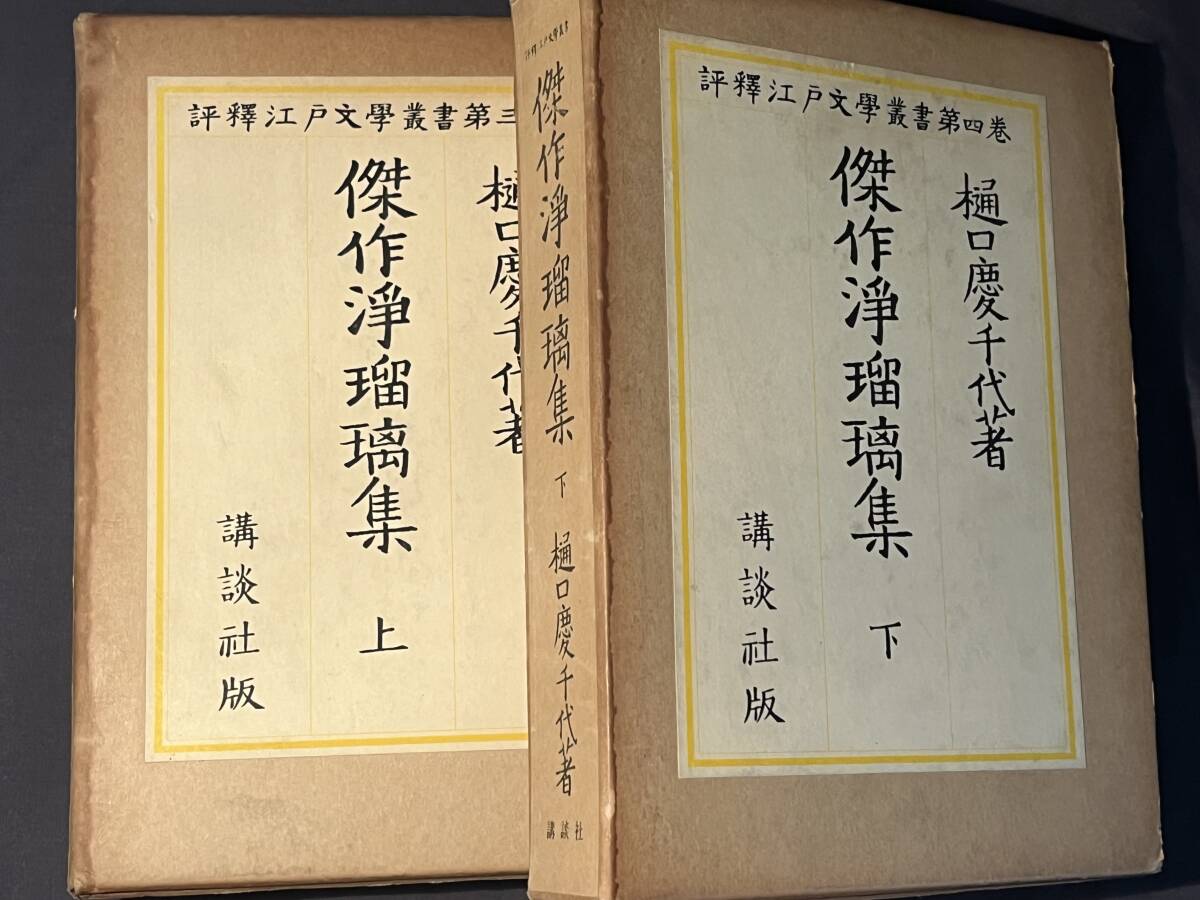 評釋江戸文學叢書第三
樋口慶千代著
傑作淨瑠璃集 上
講談社版
評釋江戸文學叢書
傑作淨瑠璃集 下 樋口慶千代著
講談社
評釋江戸文學叢書第四巻
樋口慶千代著
傑作淨瑠璃集 下
講談社版